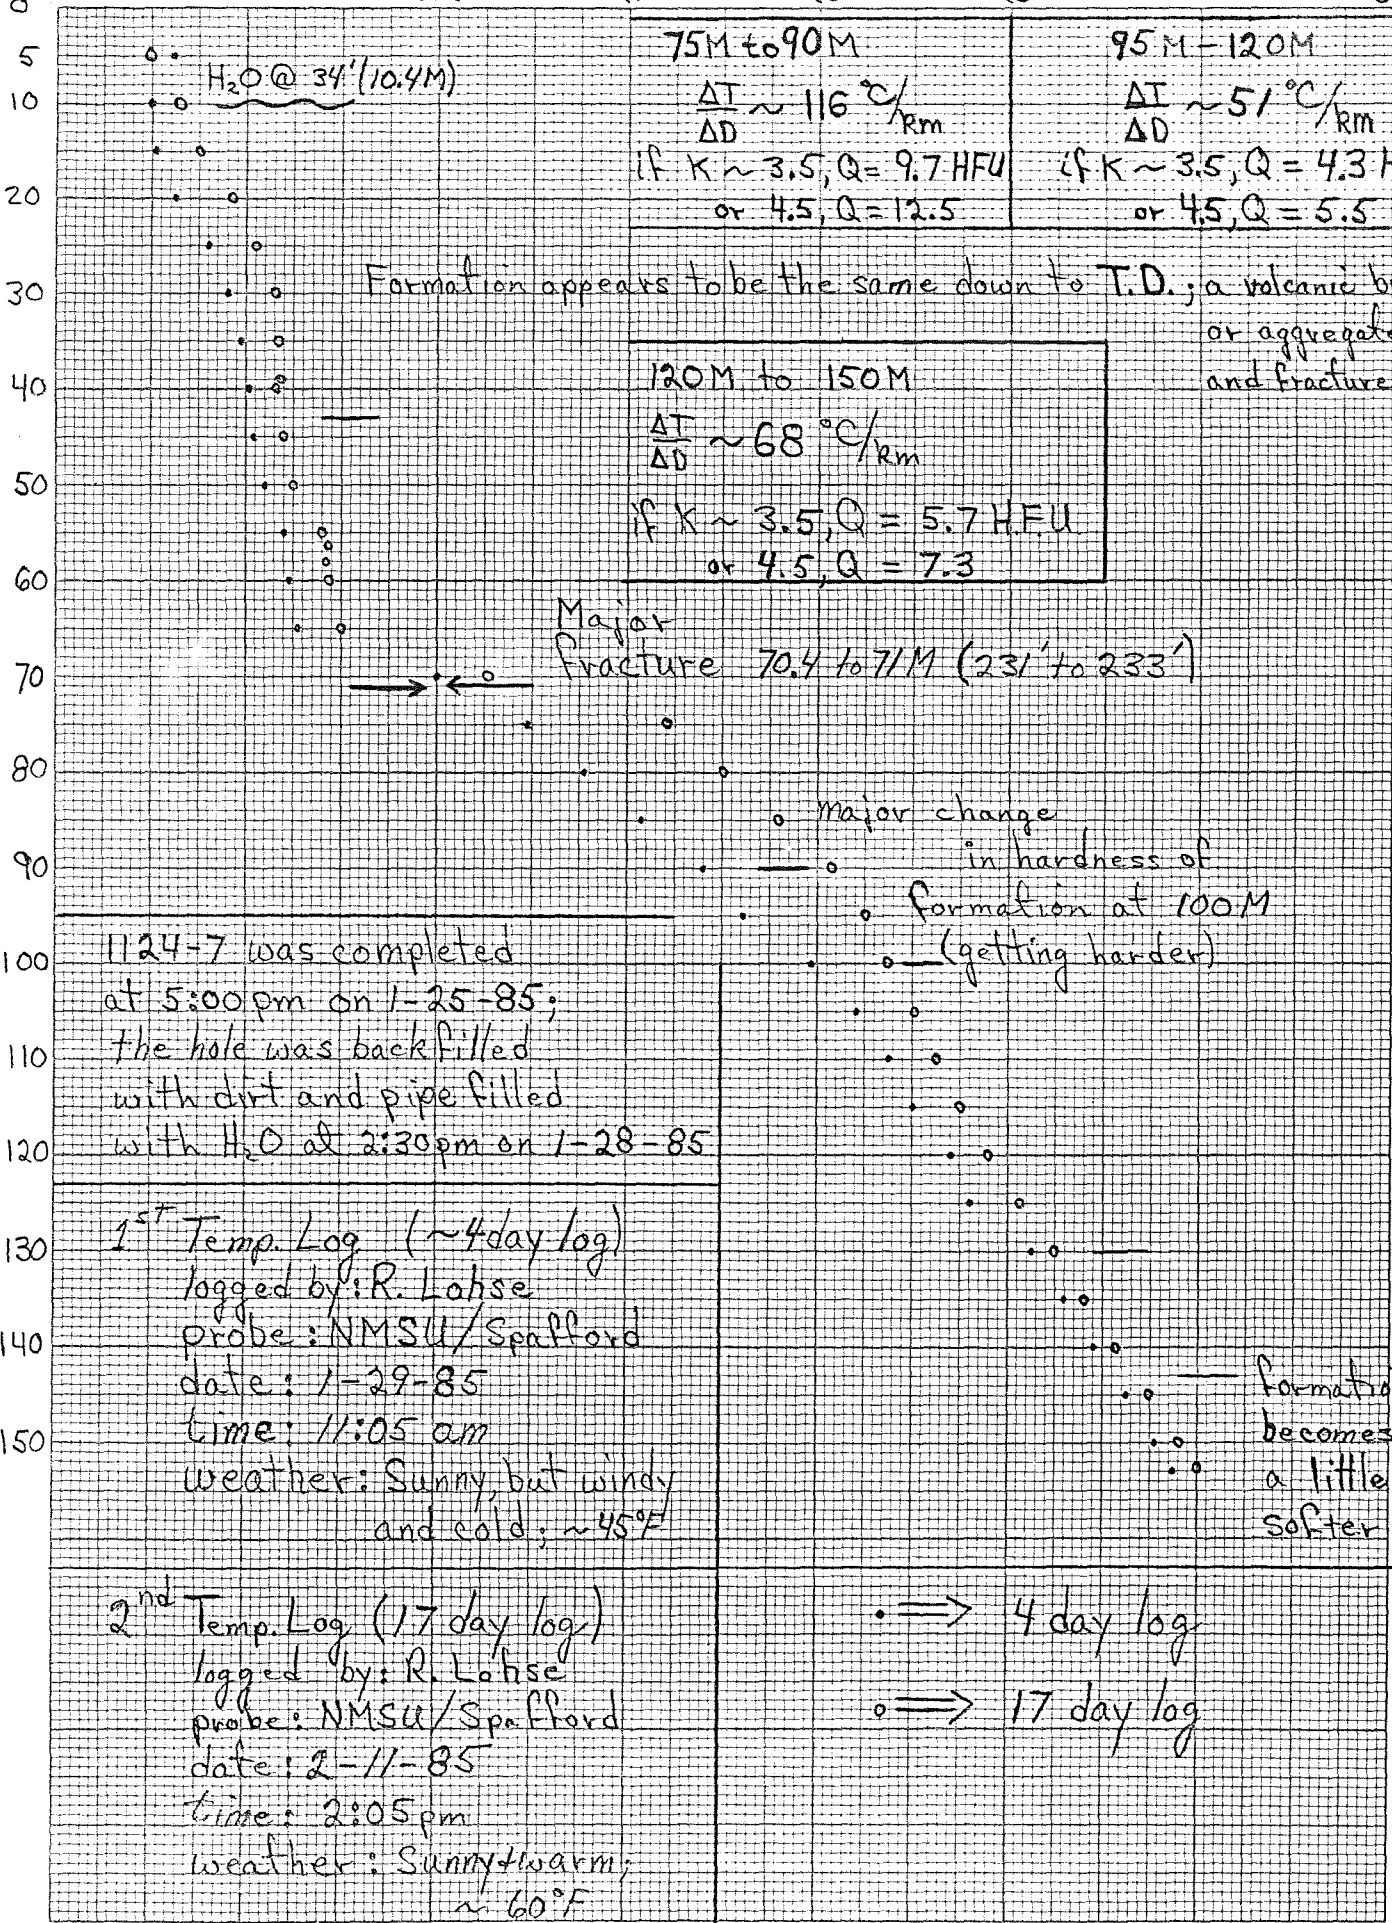 0
5
10
20
30
40
50
60
70
80
90
100
110
120
130
140
150
H₂O @ 34' (10.4M)
75M to 90M
ΔT/ΔD ~ 116 °C/km
if K ~ 3.5, Q = 9.7 HFU
or 4.5, Q = 12.5
95M - 120M
ΔT/ΔD ~ 51 °C/km
if K ~ 3.5, Q = 4.3 H
or 4.5, Q = 5.5
Formation appears to be the same down to T.D.; a volcanic b
or aggregate
and fracture
120M to 150M
ΔT/ΔD ~ 68 °C/km
if K ~ 3.5, Q = 5.7 H.F.U.
or 4.5, Q = 7.3
Major
fracture 70.4 to 71M (231' to 233')
major change
in hardness of
formation at 100M
(getting harder)
1124-7 was completed
at 5:00pm on 1-25-85;
the hole was backfilled
with dirt and pipe filled
with H₂O at 2:30pm on 1-28-85
1ST Temp. Log (~4day log)
logged by: R. Lohse
probe: NMSU/Spafford
date: 1-29-85
time: 11:05 am
weather: Sunny, but windy
and cold; ~45°F
formatio
becomes
a little
softer
2nd Temp. Log (17 day log)
logged by: R. Lohse
probe: NMSU/Spafford
date: 2-11-85
time: 2:05pm
weather: Sunny+warm;
~ 60°F
• ⇒ 4 day log
o ⇒ 17 day log